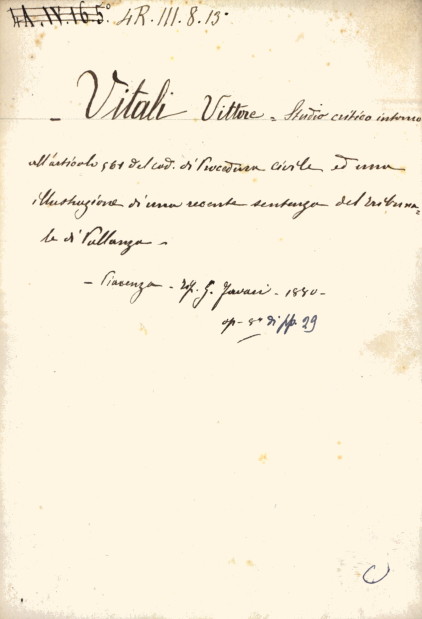 4A.IV.165° 4R.III.8.15°
- Vitali Vittore = Studio critico intorno
all'articolo 561 del cod. di Procedura civile ed una
illustrazione di una recente sentenza del tribuna=
le di Pallanza.
- Piacenza - Tip. G. Tavari - 1880 -
op - 8° di pp. 29